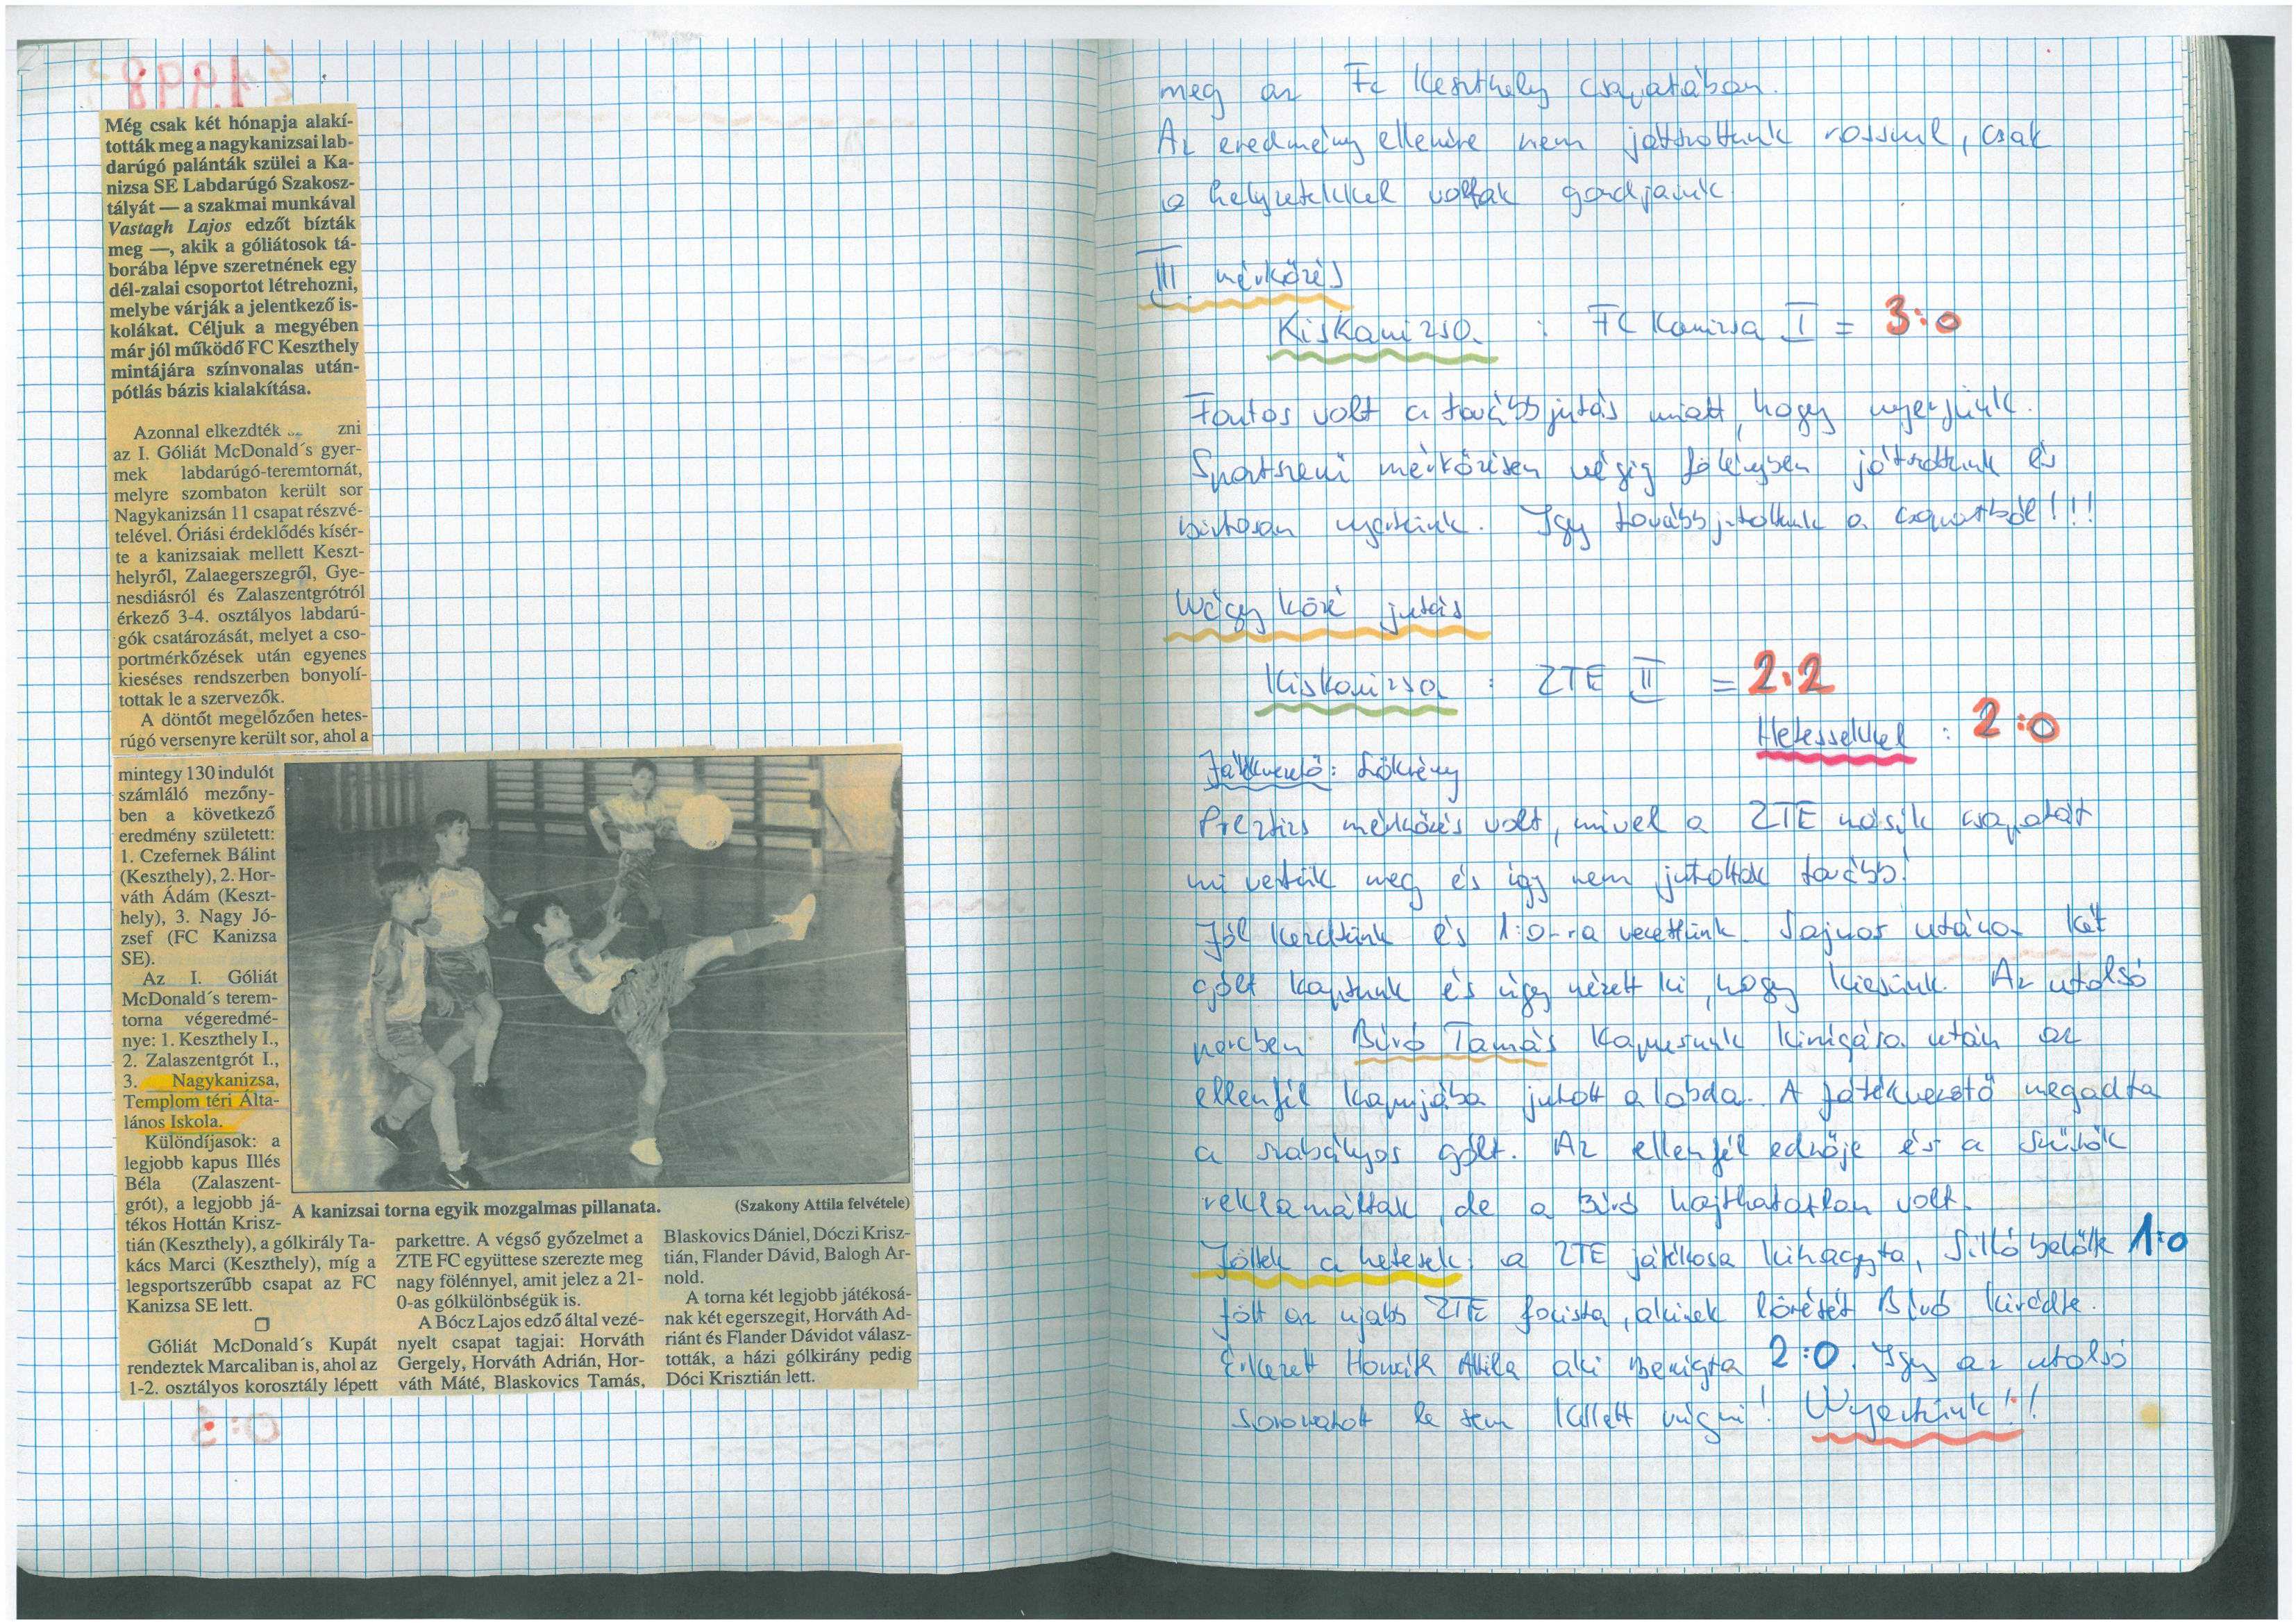 Még csak két hónapja alakí-
tották meg a nagykanizsai lab-
darúgó palánták szülei a Ka-
nizsa SE Labdarúgó Szakosz-
tályát — a szakmai munkával
Vastagh Lajos edzőt bízták
meg —, akik a góliátosok tá-
borába lépve szeretnének egy
dél-zalai csoportot létrehozni,
melybe várják a jelentkező is-
kolákat. Céljuk a megyében
már jól működő FC Keszthely
mintájára színvonalas után-
pótlás bázis kialakítása.
Azonnal elkezdték zni
az I. Góliát McDonald´s gyer-
mek labdarúgó-teremtornát,
melyre szombaton került sor
Nagykanizsán 11 csapat részvé-
telével. Óriási érdeklődés kísér-
te a kanizsaiak mellett Keszt-
helyről, Zalaegerszegről, Gye-
nesdiásról és Zalaszentgrótról
érkező 3-4. osztályos labdarú-
gók csatározását, melyet a cso-
portmérkőzések után egyenes
kieséses rendszerben bonyolí-
tottak le a szervezők.
A döntőt megelőzően hetes-
rúgó versenyre került sor, ahol a
mintegy 130 indulót
számláló mezőny-
ben a következő
eredmény született:
1. Czefernek Bálint
(Keszthely), 2. Hor-
váth Ádám (Keszt-
hely), 3. Nagy Jó-
zsef (FC Kanizsa
SE).
Az I. Góliát
McDonald´s terem-
torna végeredmé-
nye: 1. Keszthely I.,
2. Zalaszentgrót I.,
3. Nagykanizsa,
Templom téri Álta-
lános Iskola.
Különdíjasok: a
legjobb kapus Illés
Béla (Zalaszent-
grót), a legjobb já-
tékos Hottán Krisz-
tián (Keszthely), a gólkirály Ta-
kács Marci (Keszthely), míg a
legsportszerűbb csapat az FC
Kanizsa SE lett.
Góliát McDonald´s Kupát
rendeztek Marcaliban is, ahol az
1-2. osztályos korosztály lépett
A kanizsai torna egyik mozgalmas pillanata. (Szakony Attila felvétele)
parkettre. A végső győzelmet a
ZTE FC együttese szerezte meg
nagy fölénnyel, amit jelez a 21-
0-as gólkülönbségük is.
A Bócz Lajos edző által vezé-
nyelt csapat tagjai: Horváth
Gergely, Horváth Adrián, Hor-
váth Máté, Blaskovics Tamás,
Blaskovics Dániel, Dóczi Krisz-
tián, Flander Dávid, Balogh Ar-
nold.
A torna két legjobb játékosá-
nak két egerszegit, Horváth Ad-
riánt és Flander Dávidot válasz-
tották, a házi gólkirány pedig
Dóci Krisztián lett.
meg az Fc Keszthely csapatában.
Az eredmény ellenére nem játszottunk rosszul, csak
a helyzetekkel voltak gondjaink
III. mérkőzés
Kiskanizsa : FC Kanizsa I = 3:0
Fontos volt a továbbjutás miatt, hogy nyerjünk.
mérkőzésen végig fölényben játszottunk és
biztosan nyertünk. Így továbbjutottunk a csoportból!!!
Négy közé jutás
Kiskanizsa : ZTE II = 2:2
Hetesekkel : 2:0
Játékvezető: Sökrény
Presztizs mérkőzés volt, mivel a ZTE másik csapatát
mi vertük meg és így nem jutottak tovább!
Jól kezdtünk és 1:0-ra vezettünk. Sajnos utána két
gólt kaptunk és úgy nézett ki, hogy kiesünk. Az utolsó
percben Biró Tamás kapusunk kirúgása után az
ellenfél kapujába jutott a labda. A játékvezető megadta
a szabályos gólt. Az ellenfél edzője és a szülők
reklamáltak, de a biró hajthatatlan volt.
Jöttek a hetesek: a ZTE játékosa kihagyta, belőtte 1:0
Jött az ujabb ZTE focista, akinek lövését Biró kivédte.
Érkezett Horváth Attila aki berúgta 2:0. Igy az utolsó
sorozatot le sem kellett rúgni! Nyertünk!!